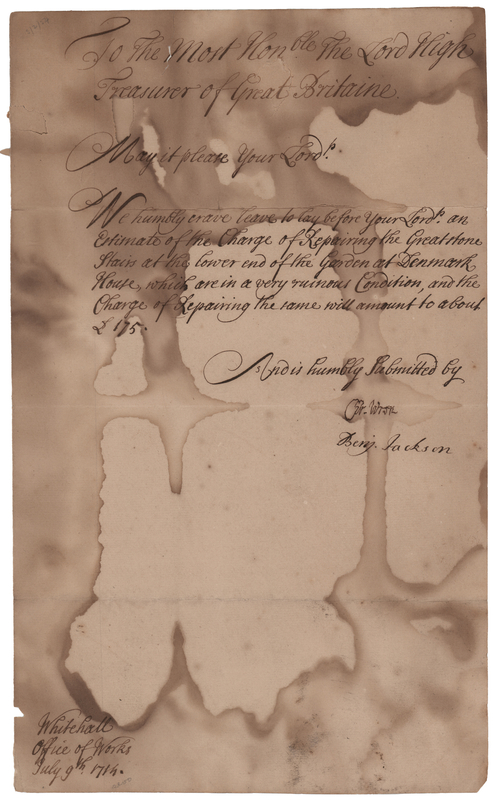 To The Most Hon.ble The Lord High
Treasurer of Great Britaine.
May it please Your Lord.p
We humbly crave leave to lay before Your Lord.p an
Estimate of the Charge of Repairing the Great stone
Stairs at the lower end of the Garden at Denmark
House, which are in a very ruinous Condition, and the
Charge of Repairing the same will amount to about
£ 175.
And is humbly Submitted by
Chr. Wren
Benj. Jackson
Whitehall
Office of Works
July 9th. 1714.